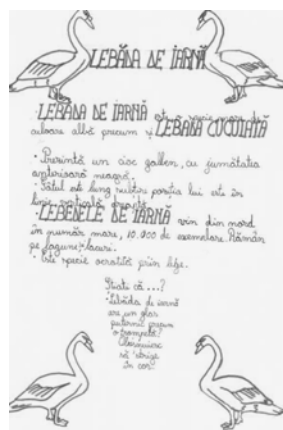 LEBĂDA DE IARNĂ
·LEBĂDA DE IARNĂ este o specie mare de
culoare albă precum și LEBĂDA CUCUIATĂ
·Prezintă un cioc galben, cu jumătatea
anterioară neagră.
·Gâtul est lung subțire poziția lui este în
linie verticală dreaptă.
·LEBEDELE DE IARNĂ vin din nord
în număr mare, 10.000 de exemplare. Rămân
pe lagune, lacuri.
·Este specie ocrotită prin lege.
Știați că...?
Lebăda de iarnă
are un glas
puternic precum
o trompetă?
Obișnuiesc
să strige
în cor.